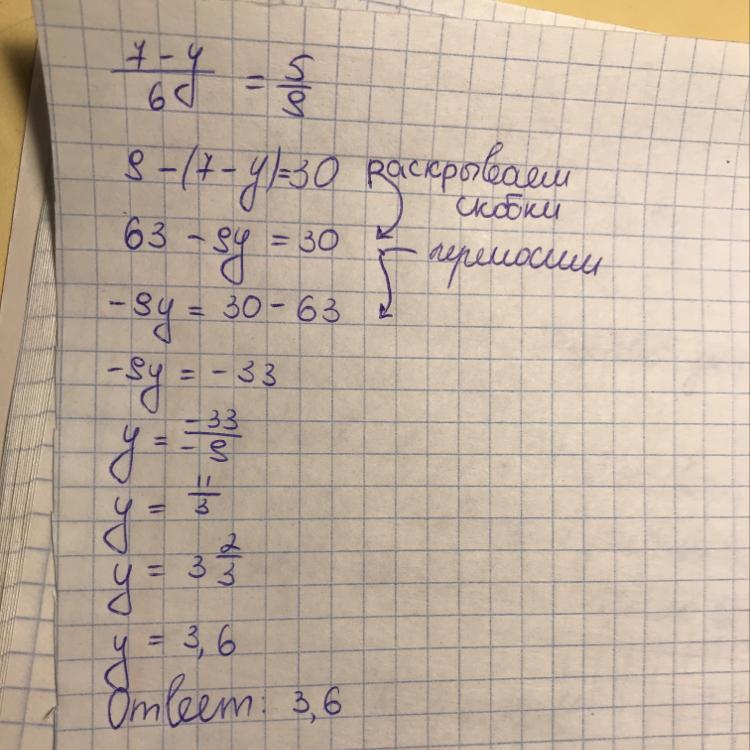 7 - y / 6 = 5 / 9
9 - (7 - y) = 30 раскрываем
скобки
63 - 9y = 30
переносим
-9y = 30 - 63
-9y = -33
y = -33 / -9
y = 11 / 3
y = 3 2/3
y = 3,6
Ответ: 3,6